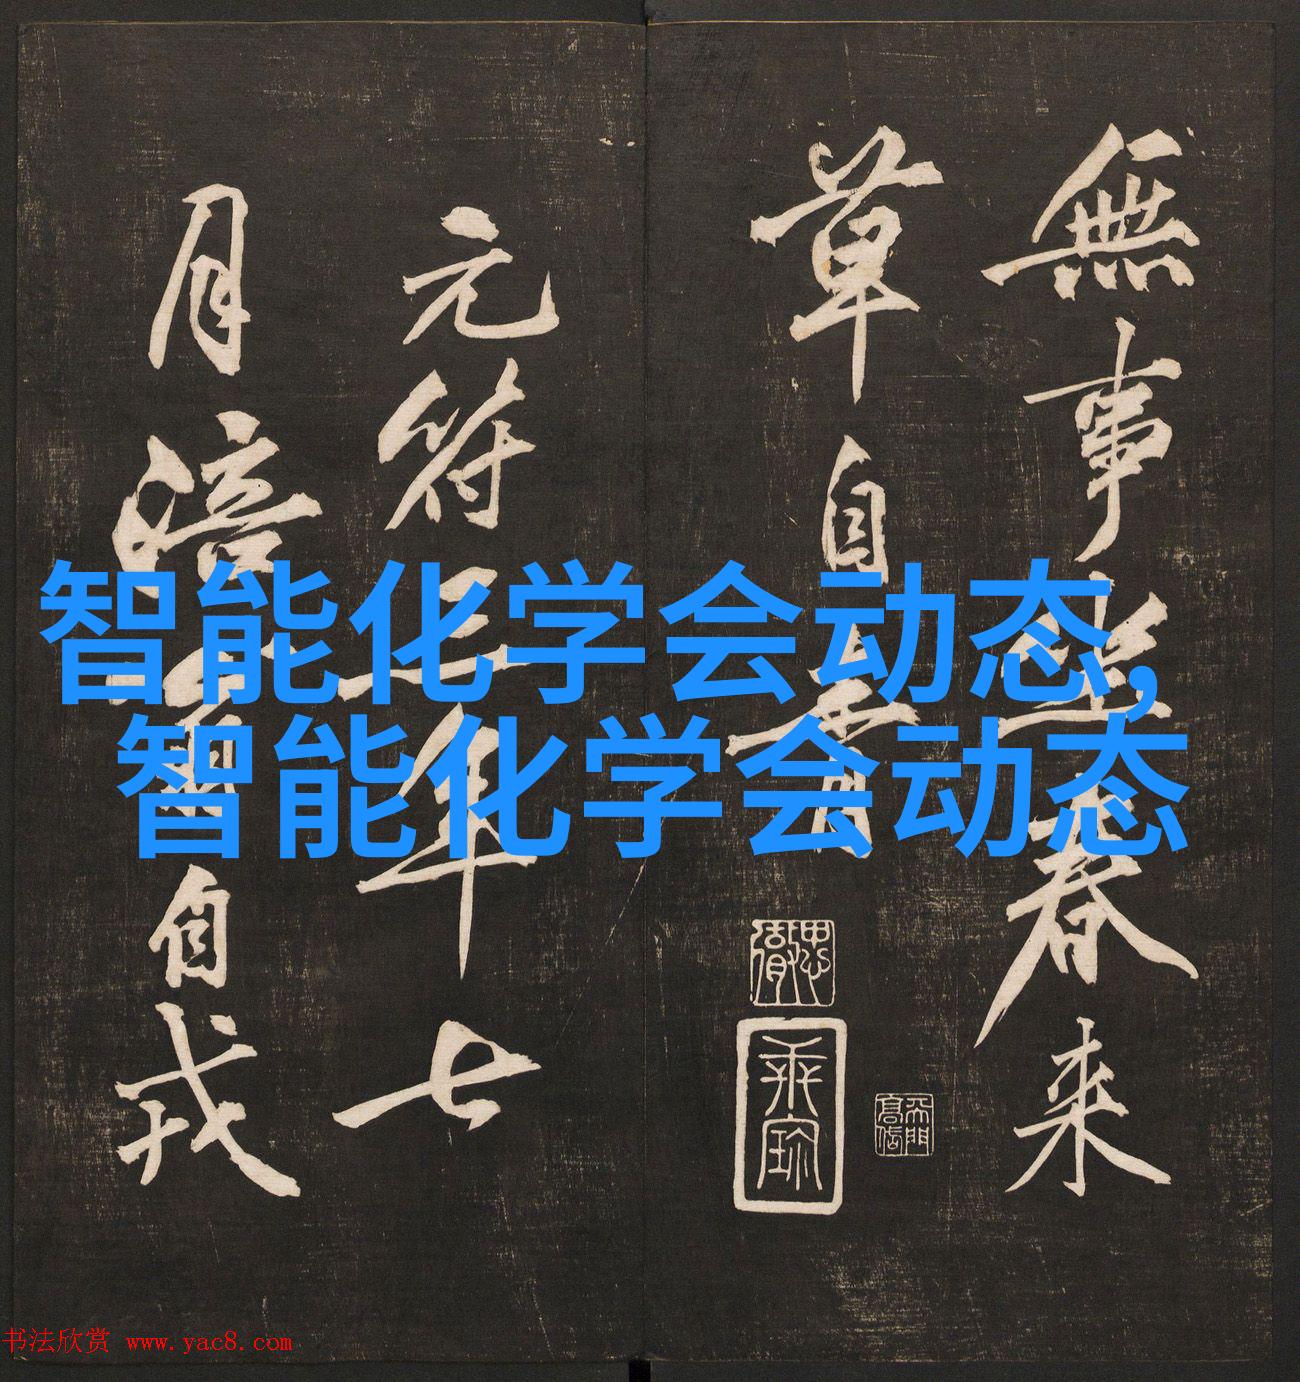 無事坐春来
草自青
元符三年七
月涪翁自戎
智能化学会动态,
智能化学会动态
书法欣赏 www.yac8.com